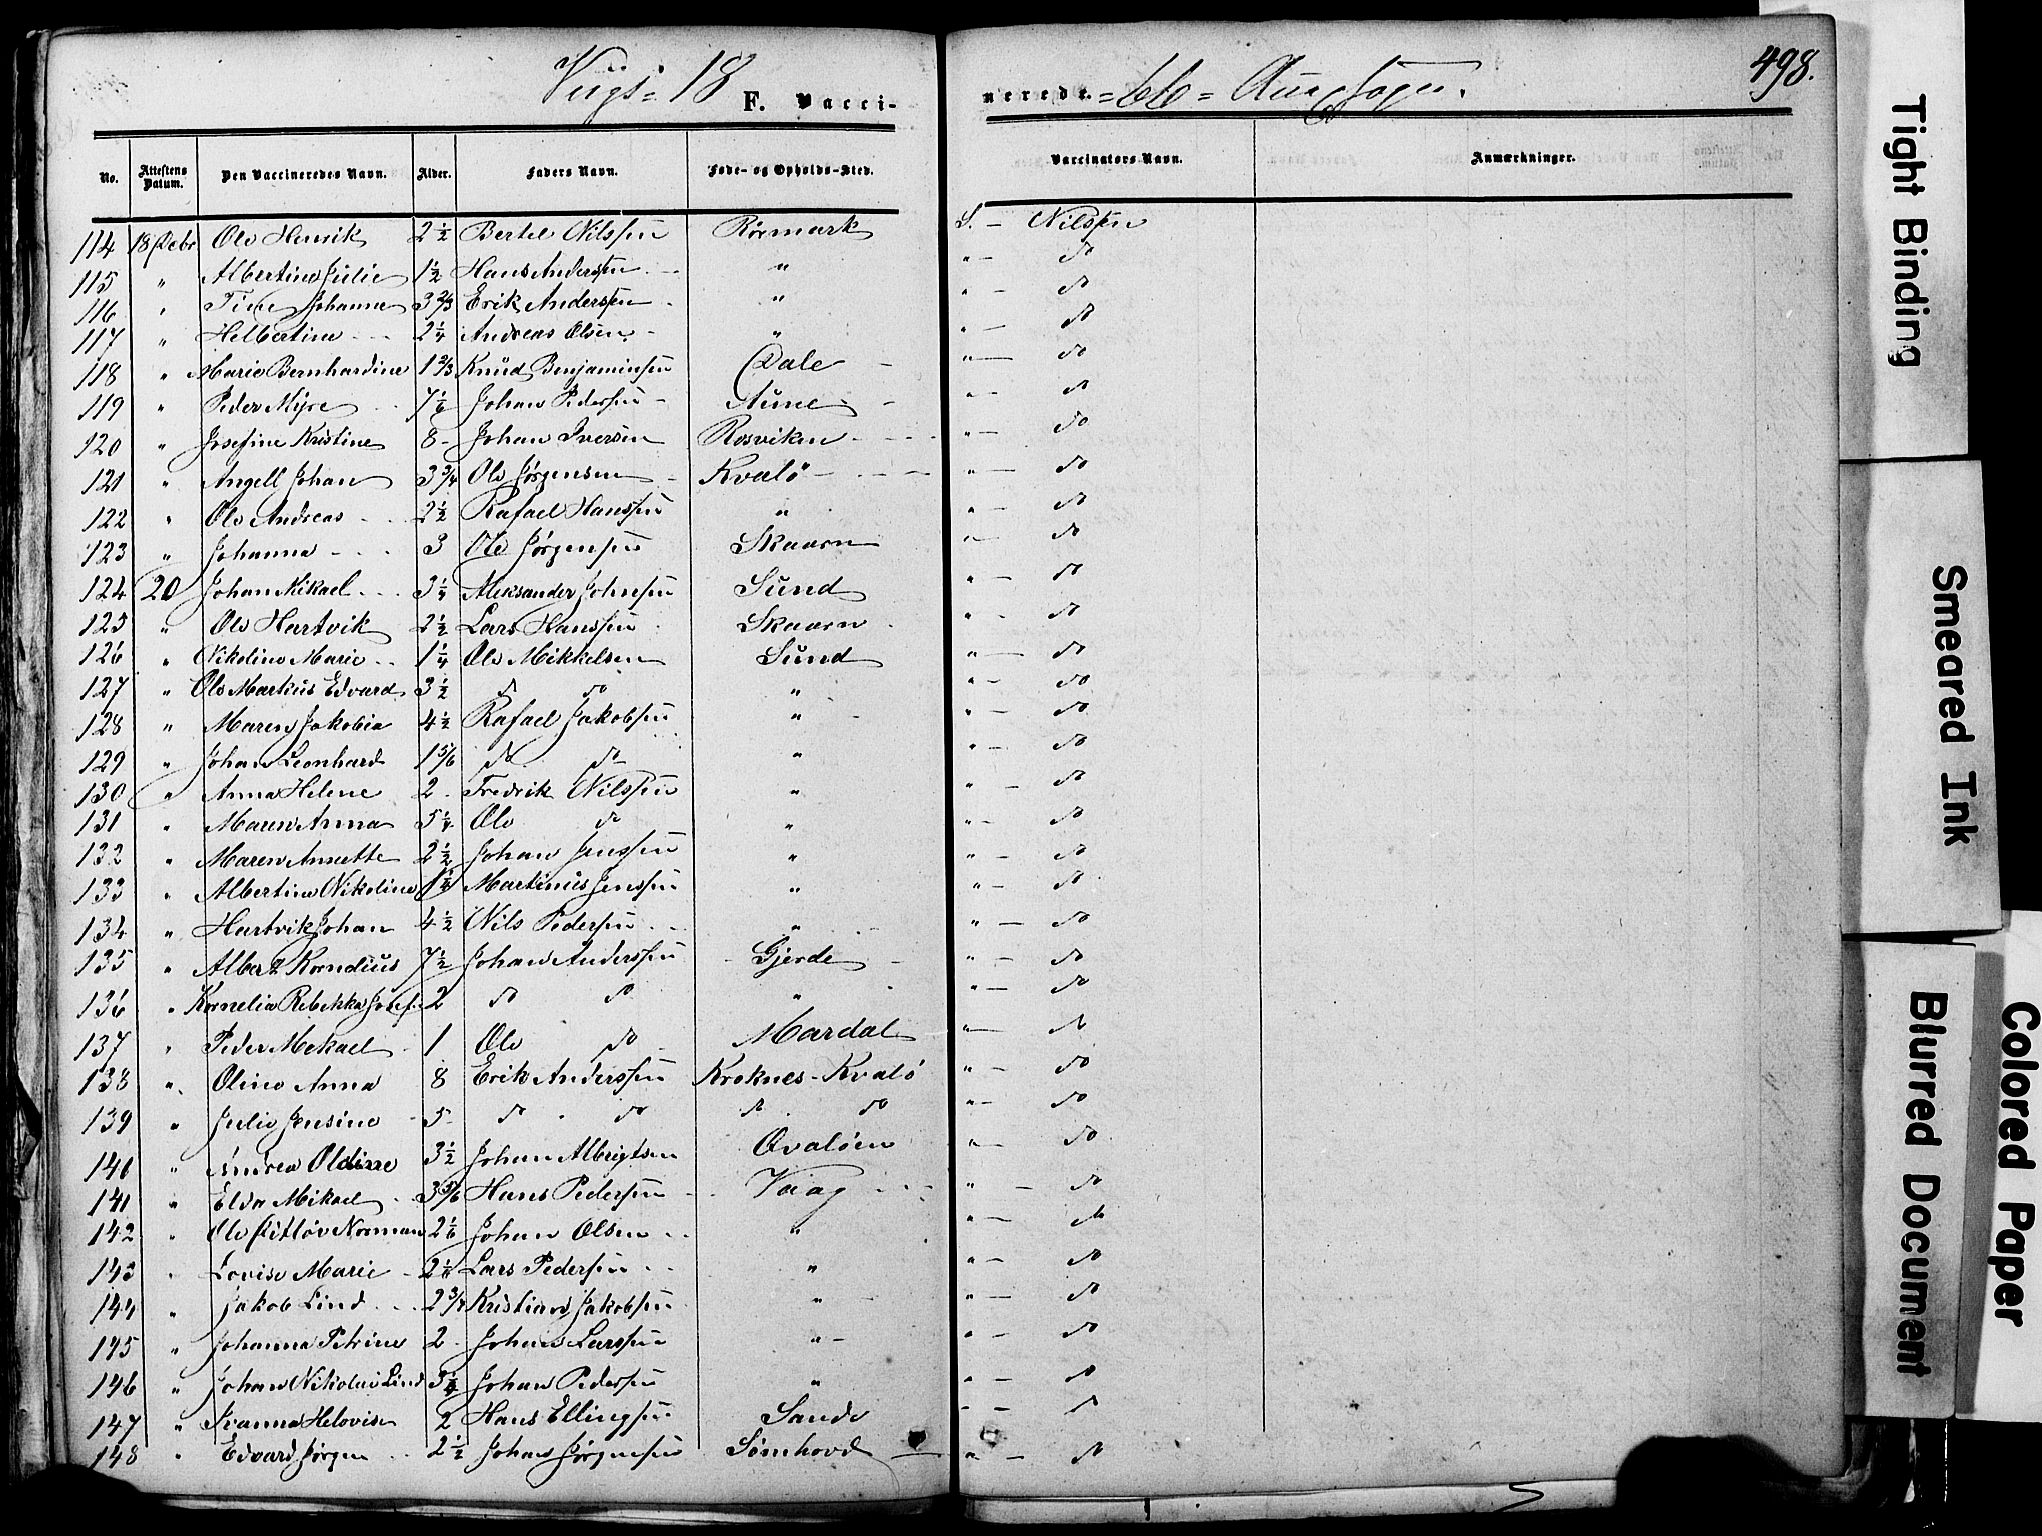 Vugs= 18 F. Vacci-
nerede =66= Aune Sogn.
498.
No. Attestens Datum. Den Vaccineredes Navn. Alder. Faders Navn. Føde- og Opholds-Sted. Vaccinators Navn. Anmærkninger.
114 18 Febr Ole Henrik 2½ Bertel Nilssen Rørmark S. — Nilssen
115 " Albertine Julie 1½ Hans Anderssen " " — do
116 " Tine Johanna 3⅔ Erik Anderssen " " — do
117 " Helbertine 2¼ Andreas Olsen " " — do
118 " Marie Bernhardine 1⅔ Knud Benjaminsen Dale " — do
119 " Peder Myre 7⅙ Johan Pedersen Aune " — do
120 " Josefine Kristine 8 Johan Iversen Rosviken " — do
121 " Angell Johan 3¾ Ole Jørgensen Kvalö " — do
122 " Ole Andreas 2½ Rafael Hanssen " " — do
123 " Johanna 3 Ole Jørgensen Skaarn " — do
124 20 Johan Mikael 3¼ Aleksander Johnsen Sund " — do
125 " Ole Hartvik 2½ Lars Hanssen Skaarn " — do
126 " Nikoline Marie 1¼ Ole Mikkelsen Sund " — do
127 " Ole Markus Edvard 3½ do do " " — do
128 " Maren Jakobia 4½ Rafael Jakobsen " " — do
129 " Johan Leonhard 1⅚ do do " " — do
130 " Anna Helene 2 Fredrik Nilssen " " — do
131 " Maren Anna 5¼ Ole do " " — do
132 " Maren Annette 2½ Johan Jenssen " " — do
133 " Albertine Nikoline Martinus Jenssen " " — do
134 " Hartvik Johan 4½ Nils Pedersen " " — do
135 " Albert Kornelius 7½ Johan Anderssen Gjerde " — do
136 " Kornelia Rebekka Josefi 2 do do " " — do
137 " Peder Mekael 1 Ole do Mardal " — do
138 " Oline Anna 8 Erik Anderssen Kroknes-Kvalö " — do
139 " Julie Jensine 5 do do do do " — do
140 " Andrea Oldine 3½ Johan Albrigtsen Qvalöen " — do
141 " Elda Mikael 3⅚ Hans Pedersen Vaag " — do
142 " Ole Ditløv Norman 2⅙ Johan Olsen " " — do
143 " Lovise Marie Lars Pedersen " " — do
144 " Jakob Lind 2¾ Kristian Jakobsen " " — do
145 " Johanna Petrine 2 Johan Larssen " " — do
146 " Johan Nikolai Lind Johan Pedersen " " — do
147 " Ivanna Helovise 2 Hans Ellingsen Sande " — do
148 " Edvard Jørgen 2½ Johan Jørgensen Sømhovd " — do
Tight Binding
Smeared Ink
Blurred Document
Colored Paper